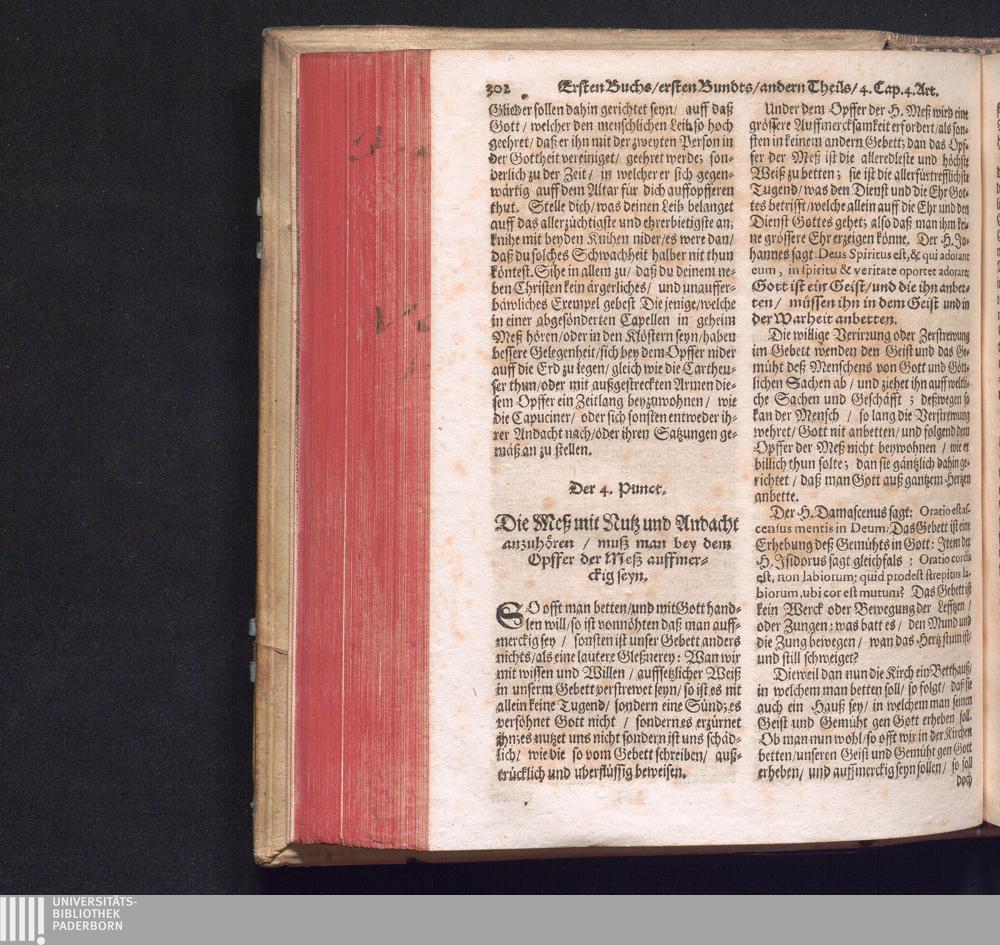 302 Ersten Buchs/ersten Bundts/andern Theils/ 4. Cap. 4. Art.
Glieder sollen dahin gerichtet seyn/ auff daß
Gott/ welcher den menschlichen Leib so hoch
geehret/ daß er ihn mit der zweyten Person in
der Gottheit vereiniget/ geehret werde; son-
derlich zu der Zeit/ in welcher er sich gegen-
wärtig auff dem Altar für dich auffopfferen
thut. Stelle dich/ was deinen Leib belanget
auff das allerzüchtigste und ehrerbietigste an;
knihe mit beyden Knihen nider/es were dan/
daß du solches Schwachheit halber nit thun
köntest. Sihe in allem zu/ daß du deinem ne-
ben Christen kein ärgerliches/ und unauffer-
bäwliches Exempel gebest Die jenige/welche
in einer abgesönderten Capellen in geheim
Meß hören/oder in den Klöstern seyn/haben
bessere Gelegenheit/sich bey dem Opffer nider
auff die Erd zu legen/ gleich wie die Cartheu-
ser thun/oder mit außgestreckten Armen die-
sem Opffer ein Zeitlang beyzuwohnen/ wie
die Capuciner/ oder sich sonsten entweder ih-
rer Andacht nach/oder ihren Satzungen ge-
mäß an zu stellen.
Der 4. Punct.
Die Meß mit Nutz und Andacht
anzuhören / muß man bey dem
Opffer der Meß auffmer-
ckig seyn.
SO offt man betten/und mit Gott hand-
len will/so ist vonnöhten daß man auff-
merckig sey / sonsten ist unser Gebett anders
nichts/als eine lautere Gleßnerey: Wan wir
mit wissen und Willen / auffsetzlicher Weiß
in unserm Gebett verstrewet seyn/ so ist es nit
allein keine Tugend/ sondern eine Sünd; es
versöhnet Gott nicht / sondern es erzürnet
ihn; es nutzet uns nicht sondern ist uns schäd-
lich/ wie die so vom Gebett schreiben/ auß-
trücklich und uberflüssig beweisen.
Under dem Opffer der H. Meß wird eine
grössere Auffmercksamkeit erfordert/als son-
sten in keinem andern Gebett; dan das Opf-
fer der Meß ist die alleredleste und höchste
Weiß zu betten; sie ist die allerfürtrefflichste
Tugend/ was den Dienst und die Ehr Got-
tes betrifft/welche allein auff die Ehr und den
Dienst Gottes gehet; also daß man ihm kei-
ne grössere Ehr erzeigen könne. Der H. Jo-
hannes sagt: Deus Spiritus est, & qui adorant
eum, in spiritu & veritate oportet adorare;
Gott ist ein Geist/und die ihn anbet-
ten/ müssen ihn in dem Geist und in
der Warheit anbetten.
Die willige Verirzung oder Zerstrewung
im Gebett wenden den Geist und das Ge-
müht deß Menschens von Gott und Gött-
lichen Sachen ab / und ziehet ihn auff weltli-
che Sachen und Geschäfft ; deßwegen so
kan der Mensch / so lang die Verstrewung
wehret/ Gott nit anbetten/ und folgend dem
Opffer der Meß nicht beywohnen / wie er
billich thun solte; dan sie gäntzlich dahin ge-
richtet / daß man Gott auß gantzem Hertzen
anbette.
Der H. Damascenus sagt: Oratio est as-
census mentis in Deum: Das Gebett ist eine
Erhebung deß Gemühts in Gott: Item der
H. Isidorus sagt gleichfals : Oratio cordis
est, non labiorum; quid prodest strepitus la-
biorum, ubi cor est mutum? Das Gebett ist
kein Werck oder Bewegung der Lefftzen /
oder Zungen: was batt es / den Mund und
die Zung bewegen / wan das Hertz stum ist/
und still schweiget?
Dieweil dan nun die Kirch ein Betthauß/
in welchem man betten soll/ so folgt/ daß sie
auch ein Hauß sey/ in welchem man seinen
Geist und Gemüht gen Gott erheben soll.
Ob man nun wohl/so offt wir in der Kirchen
betten/unseren Geist und Gemüht gen Gott
erheben/ und auffmerckig seyn sollen/ so soll
doch
UNIVERSITÄTS-
BIBLIOTHEK
PADERBORN